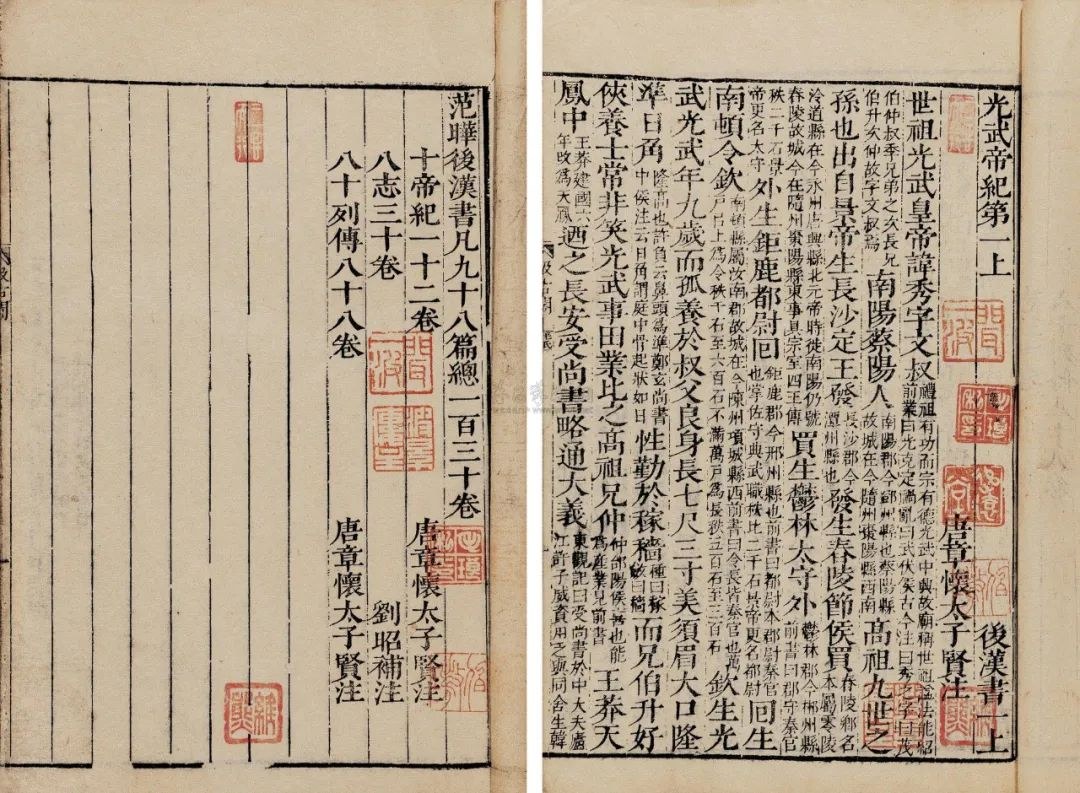 光武帝紀第一上　後漢書一上
唐章懷太子賢注
世祖光武皇帝諱秀字文叔禮祖有功而宗有德光武中興故廟稱世祖諡法能紹前業曰光克定禍亂曰武伏侯古今注曰秀之字曰茂
伯仲叔季兄弟之次長兄伯升次仲故字文叔焉南陽蔡陽人南陽郡今鄧州縣也蔡陽縣故城在今隨州棗陽縣西南高祖九世之
孫也出自景帝生長沙定王發長沙郡今潭州縣也發生舂陵節侯買舂陵鄉名本屬零陵
泠道縣在今永州唐興縣北元帝時徙南陽仍號舂陵故城今在隨州棗陽縣東事具宗室四王傳買生鬱林太守外鬱林郡今郴州縣前書曰郡守秦官
秩二千石景帝更名太守外生鉅鹿都尉回鉅鹿郡今邢州縣也前書曰都尉本郡尉秦官也掌佐守典武職秩比二千石景帝更名都尉回生
南頓令欽南頓縣屬汝南郡故城在今陳州項城縣西前書曰令長皆秦官也萬戶以上爲令秩千石至六百石不滿萬戶爲長秩五百石至三百石欽生光
武光武年九歲而孤養於叔父良身長七尺三寸美須眉大口隆
準日角隆高也許負云鼻頭爲準鄭玄尚書中侯注云日角謂庭中骨起狀如日性勤於稼穡種曰稼斂曰穡而兄伯升好
俠養士常非笑光武事田業比之高祖兄仲仲郃陽侯喜也能爲產業見前書王莽天
鳳中王莽建國六年改爲天鳳迺之長安受尚書略通大義東觀記曰受尚書於中大夫廬江許子威資用乏與同舍生韓
范曄後漢書凡九十八篇總一百三十卷
十帝紀一十二卷　唐章懷太子賢注
八志三十卷　劉昭補注
八十列傳八十八卷　唐章懷太子賢注
汲古閣